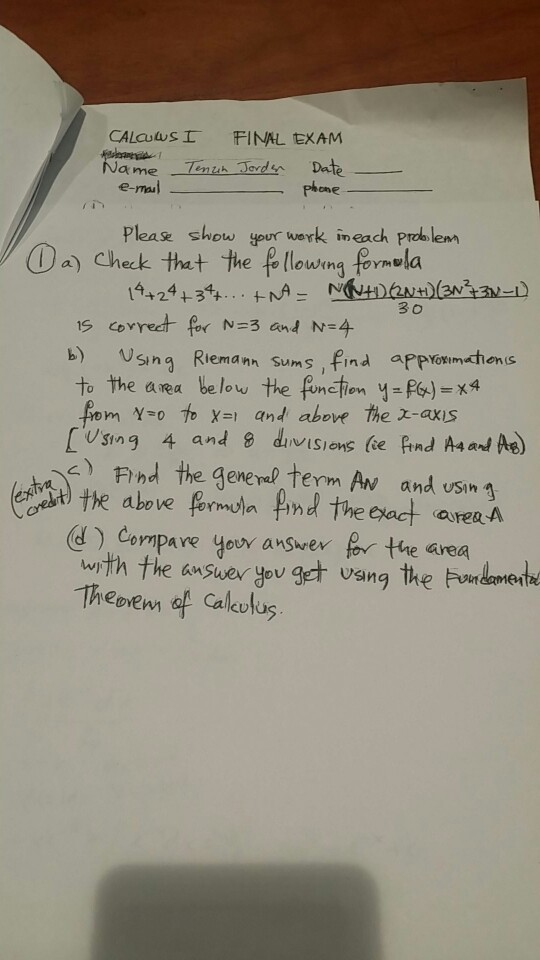 CALCULUS I FINAL EXAM
Name Tenzin Jorden Date
e-mail phone
Please show your work in each problem
① a) Check that the following formula
1⁴+2⁴+3⁴+...+N⁴ = N(N+1)(2N+1)(3N²+3N-1)
30
is correct for N=3 and N=4
b) Using Riemann sums, find approximations
to the area below the function y=f(x)=x⁴
from x=0 to x=1 and above the x-axis
[Using 4 and 8 divisions (ie find A4 and A8)
(extra credit) c) Find the general term AN and using
the above formula find the exact area A
(d) Compare your answer for the area
with the answer you get using the Fundamental
Theorem of Calculus.